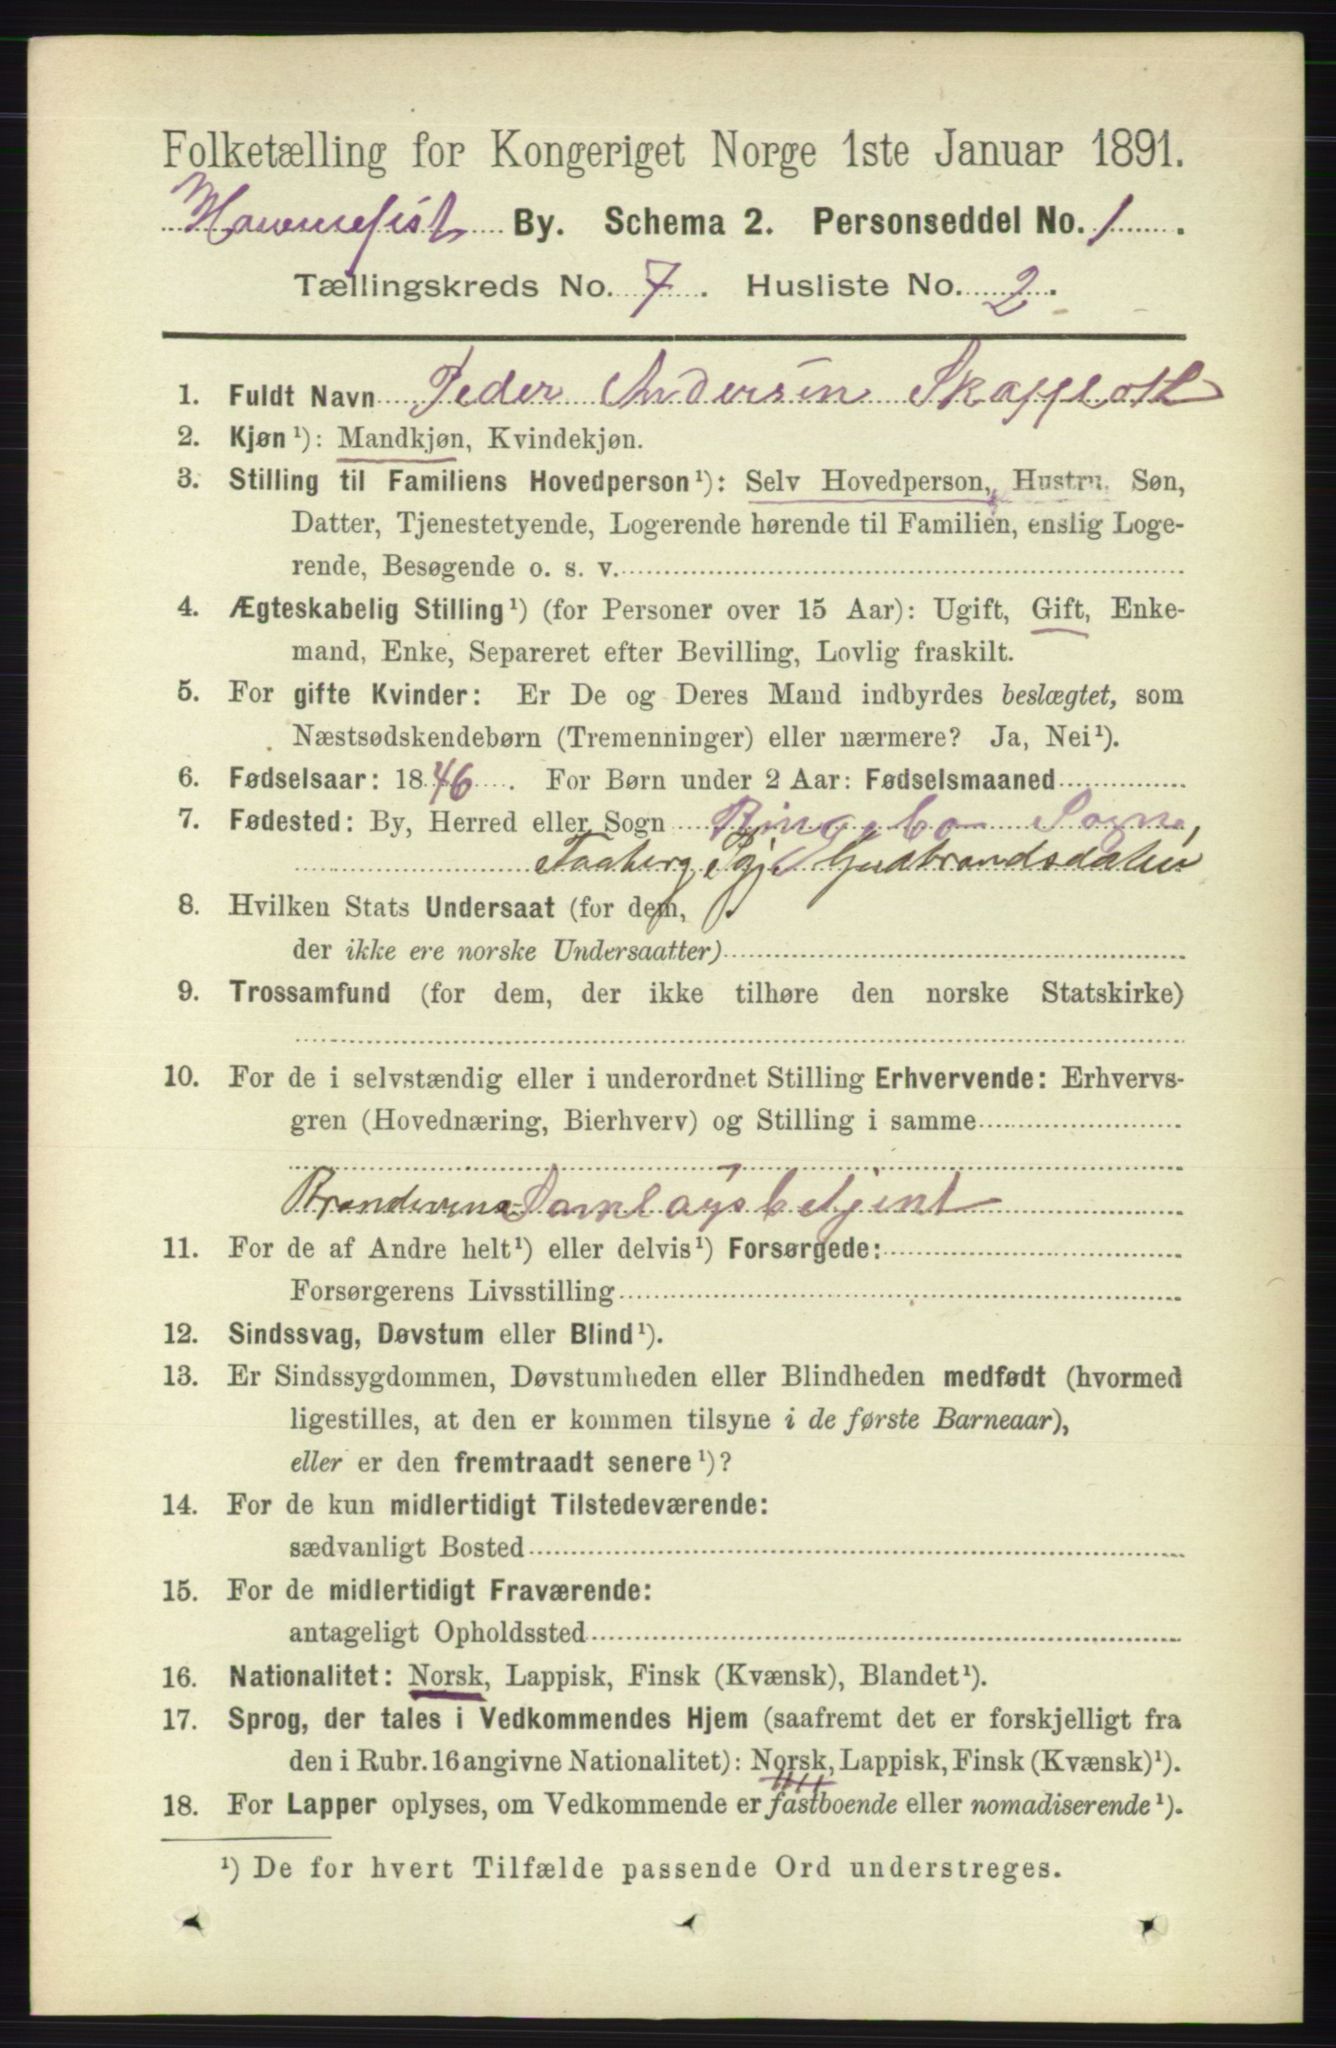 Folketælling for Kongeriget Norge 1ste Januar 1891.
Hammerfest By. Schema 2. Personseddel No. 1.
Tællingskreds No. 7. Husliste No. 2.
1. Fuldt Navn Peder Andersen
2. Kjøn¹): Mandkjøn, Kvindekjøn.
3. Stilling til Familiens Hovedperson¹): Selv Hovedperson, Hustru, Søn,
Datter, Tjenestetyende, Logerende hørende til Familien, enslig Loge-
rende, Besøgende o. s. v.
4. Ægteskabelig Stilling¹) (for Personer over 15 Aar): Ugift, Gift, Enke-
mand, Enke, Separeret efter Bevilling, Lovlig fraskilt.
5. For gifte Kvinder: Er De og Deres Mand indbyrdes beslægtet, som
Næstsødskendebørn (Tremenninger) eller nærmere? Ja, Nei¹).
6. Fødselsaar: 1846. For Børn under 2 Aar: Fødselsmaaned
7. Fødested: By, Herred eller Sogn Ringebo Sogn,
Faaberg Pgj. Gudbrandsdalen
8. Hvilken Stats Undersaat (for dem,
der ikke ere norske Undersaatter)
9. Trossamfund (for dem, der ikke tilhøre den norske Statskirke)
10. For de i selvstændig eller i underordnet Stilling Erhvervende: Erhvervs-
gren (Hovednæring, Bierhverv) og Stilling i samme
Brændevins-Samlagsbetjent
11. For de af Andre helt¹) eller delvis¹) Forsørgede:
Forsørgerens Livsstilling
12. Sindssvag, Døvstum eller Blind¹).
13. Er Sindssygdommen, Døvstumheden eller Blindheden medfødt (hvormed
ligestilles, at den er kommen tilsyne i de første Barneaar),
eller er den fremtraadt senere¹)?
14. For de kun midlertidigt Tilstedeværende:
sædvanligt Bosted
15. For de midlertidigt Fraværende:
antageligt Opholdssted
16. Nationalitet: Norsk, Lappisk, Finsk (Kvænsk), Blandet¹).
17. Sprog, der tales i Vedkommendes Hjem (saafremt det er forskjelligt fra
den i Rubr. 16 angivne Nationalitet): Norsk, Lappisk, Finsk (Kvænsk)¹).
18. For Lapper oplyses, om Vedkommende er fastboende eller nomadiserende¹).
¹) De for hvert Tilfælde passende Ord understreges.